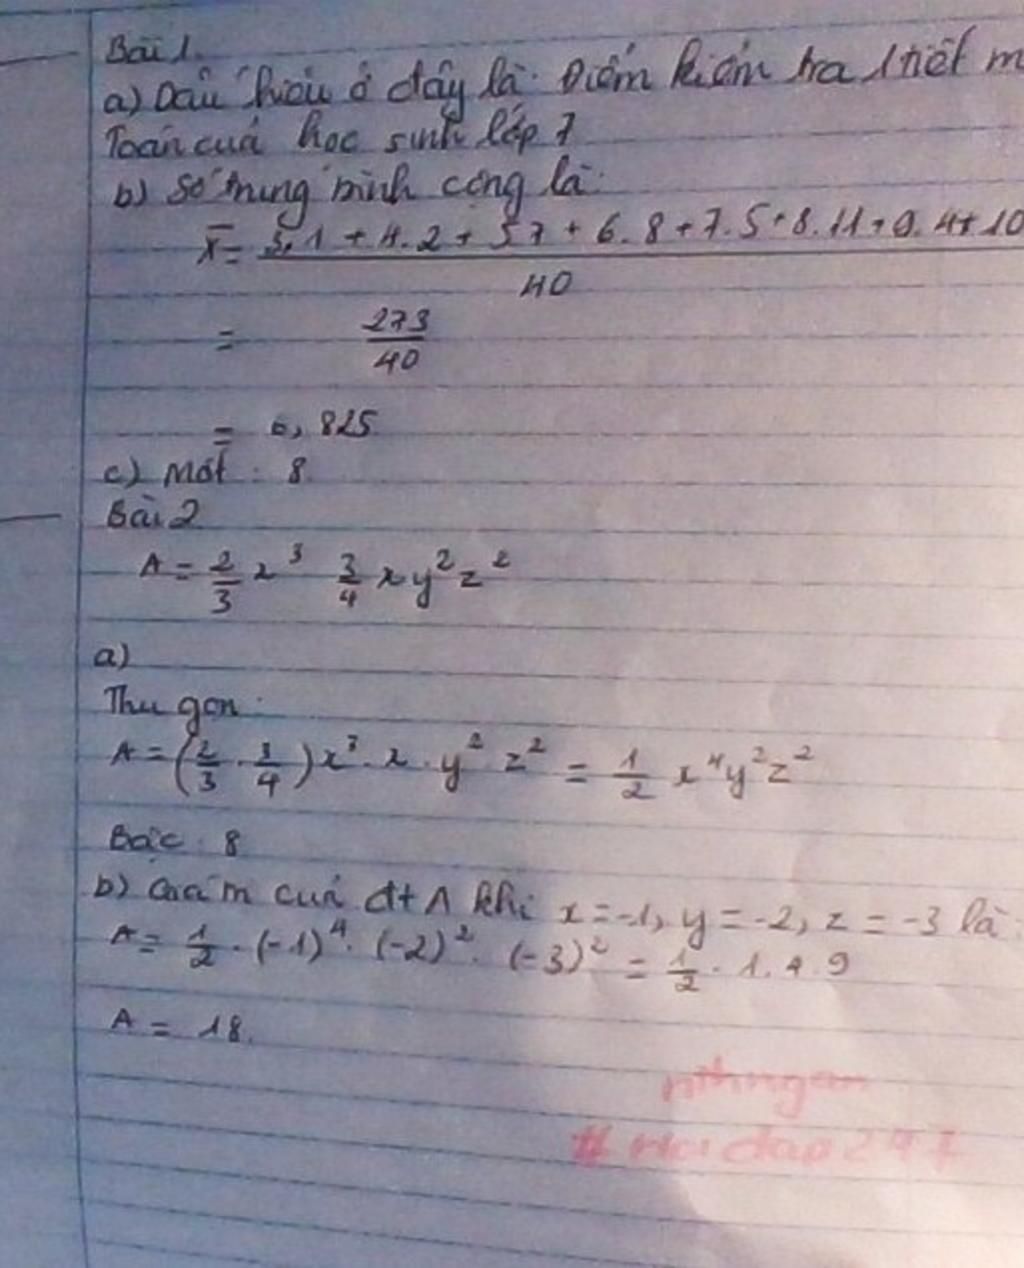 Bài 1.
a) Dấu hiệu ở đây là: Điểm kiểm tra 1 tiết m
Toán của học sinh lớp 7
b) Số trung bình cộng là:
x̄ = (3.1 + 4.2 + 5.7 + 6.8 + 7.5 + 8.11 + 9.4 + 10) / 40
= 273/40
= 6,825
c) Mốt : 8.
Bài 2
A = 2/3 x³ 3/4 xy²z²
a)
Thu gọn:
A = (2/3 . 3/4) x³ . x . y² z² = 1/2 x⁴y²z²
Bậc : 8
b) của đt A khi x = -1, y = -2, z = -3 là:
A = 1/2 . (-1)⁴ . (-2)² . (-3)² = 1/2 . 1 . 4 . 9
A = 18.
nthngan
# Hoi dap 247